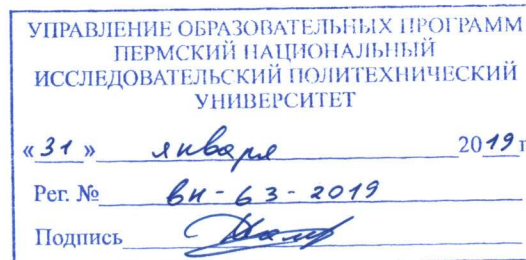 УПРАВЛЕНИЕ ОБРАЗОВАТЕЛЬНЫХ ПРОГРАММ
ПЕРМСКИЙ НАЦИОНАЛЬНЫЙ
ИССЛЕДОВАТЕЛЬСКИЙ ПОЛИТЕХНИЧЕСКИЙ
УНИВЕРСИТЕТ
«31» января 2019 г
Рег. № вн-63-2019
Подпись